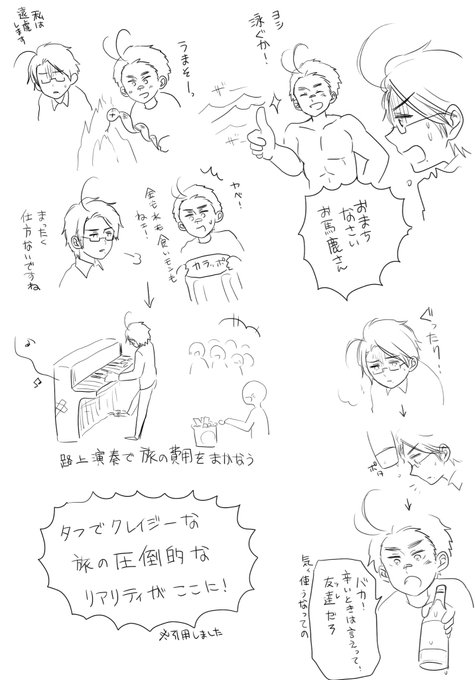 ヨシ
泳ぐか！
ザ
ザ
おまち
なさい
お馬鹿さん
うまそーっ
私は
遠慮
します
ヤベ！
金も水も食いモンも
ねェ！
カラッポ
まったく
仕方ないですね
路上演奏で旅の費用をまかなう
ぐったり！
バカ！
辛いときは言えって！
友達だろ
気ィ使うなっての
タフでクレイジーな
旅の圧倒的な
リアリティがここに！
※引用しました